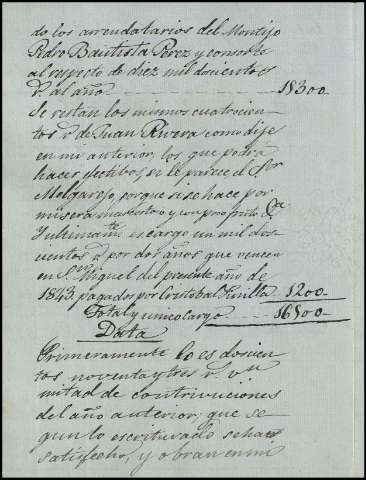 do los arrendatarios del Montijo
Pedro Bautista Perez y consorte
al respecto de diez mil docientos
r.ˢ al año 15300
Se restan los mismos cuatrocien-
tos r.ˢ de Juan Rivera como dije
en mi anterior, los que podrá
hacer efectibos, si le parece el Sor
Melgarejo, porque si se hace por
misera
es cargo un mil dos-
cientos r.ˢ por dos años que vencen
en S.ⁿ Miguel del presente año de
1843 pagados por Cristobal Pinilla 1200
Total y unico cargo 16500
Data
Primeramente lo es doscien-
tos noventa y tres r.ˢ
mitad de contrivuciones
del año anterior, que se-
gun lo escriturado se han
satisfecho, y obran en mi